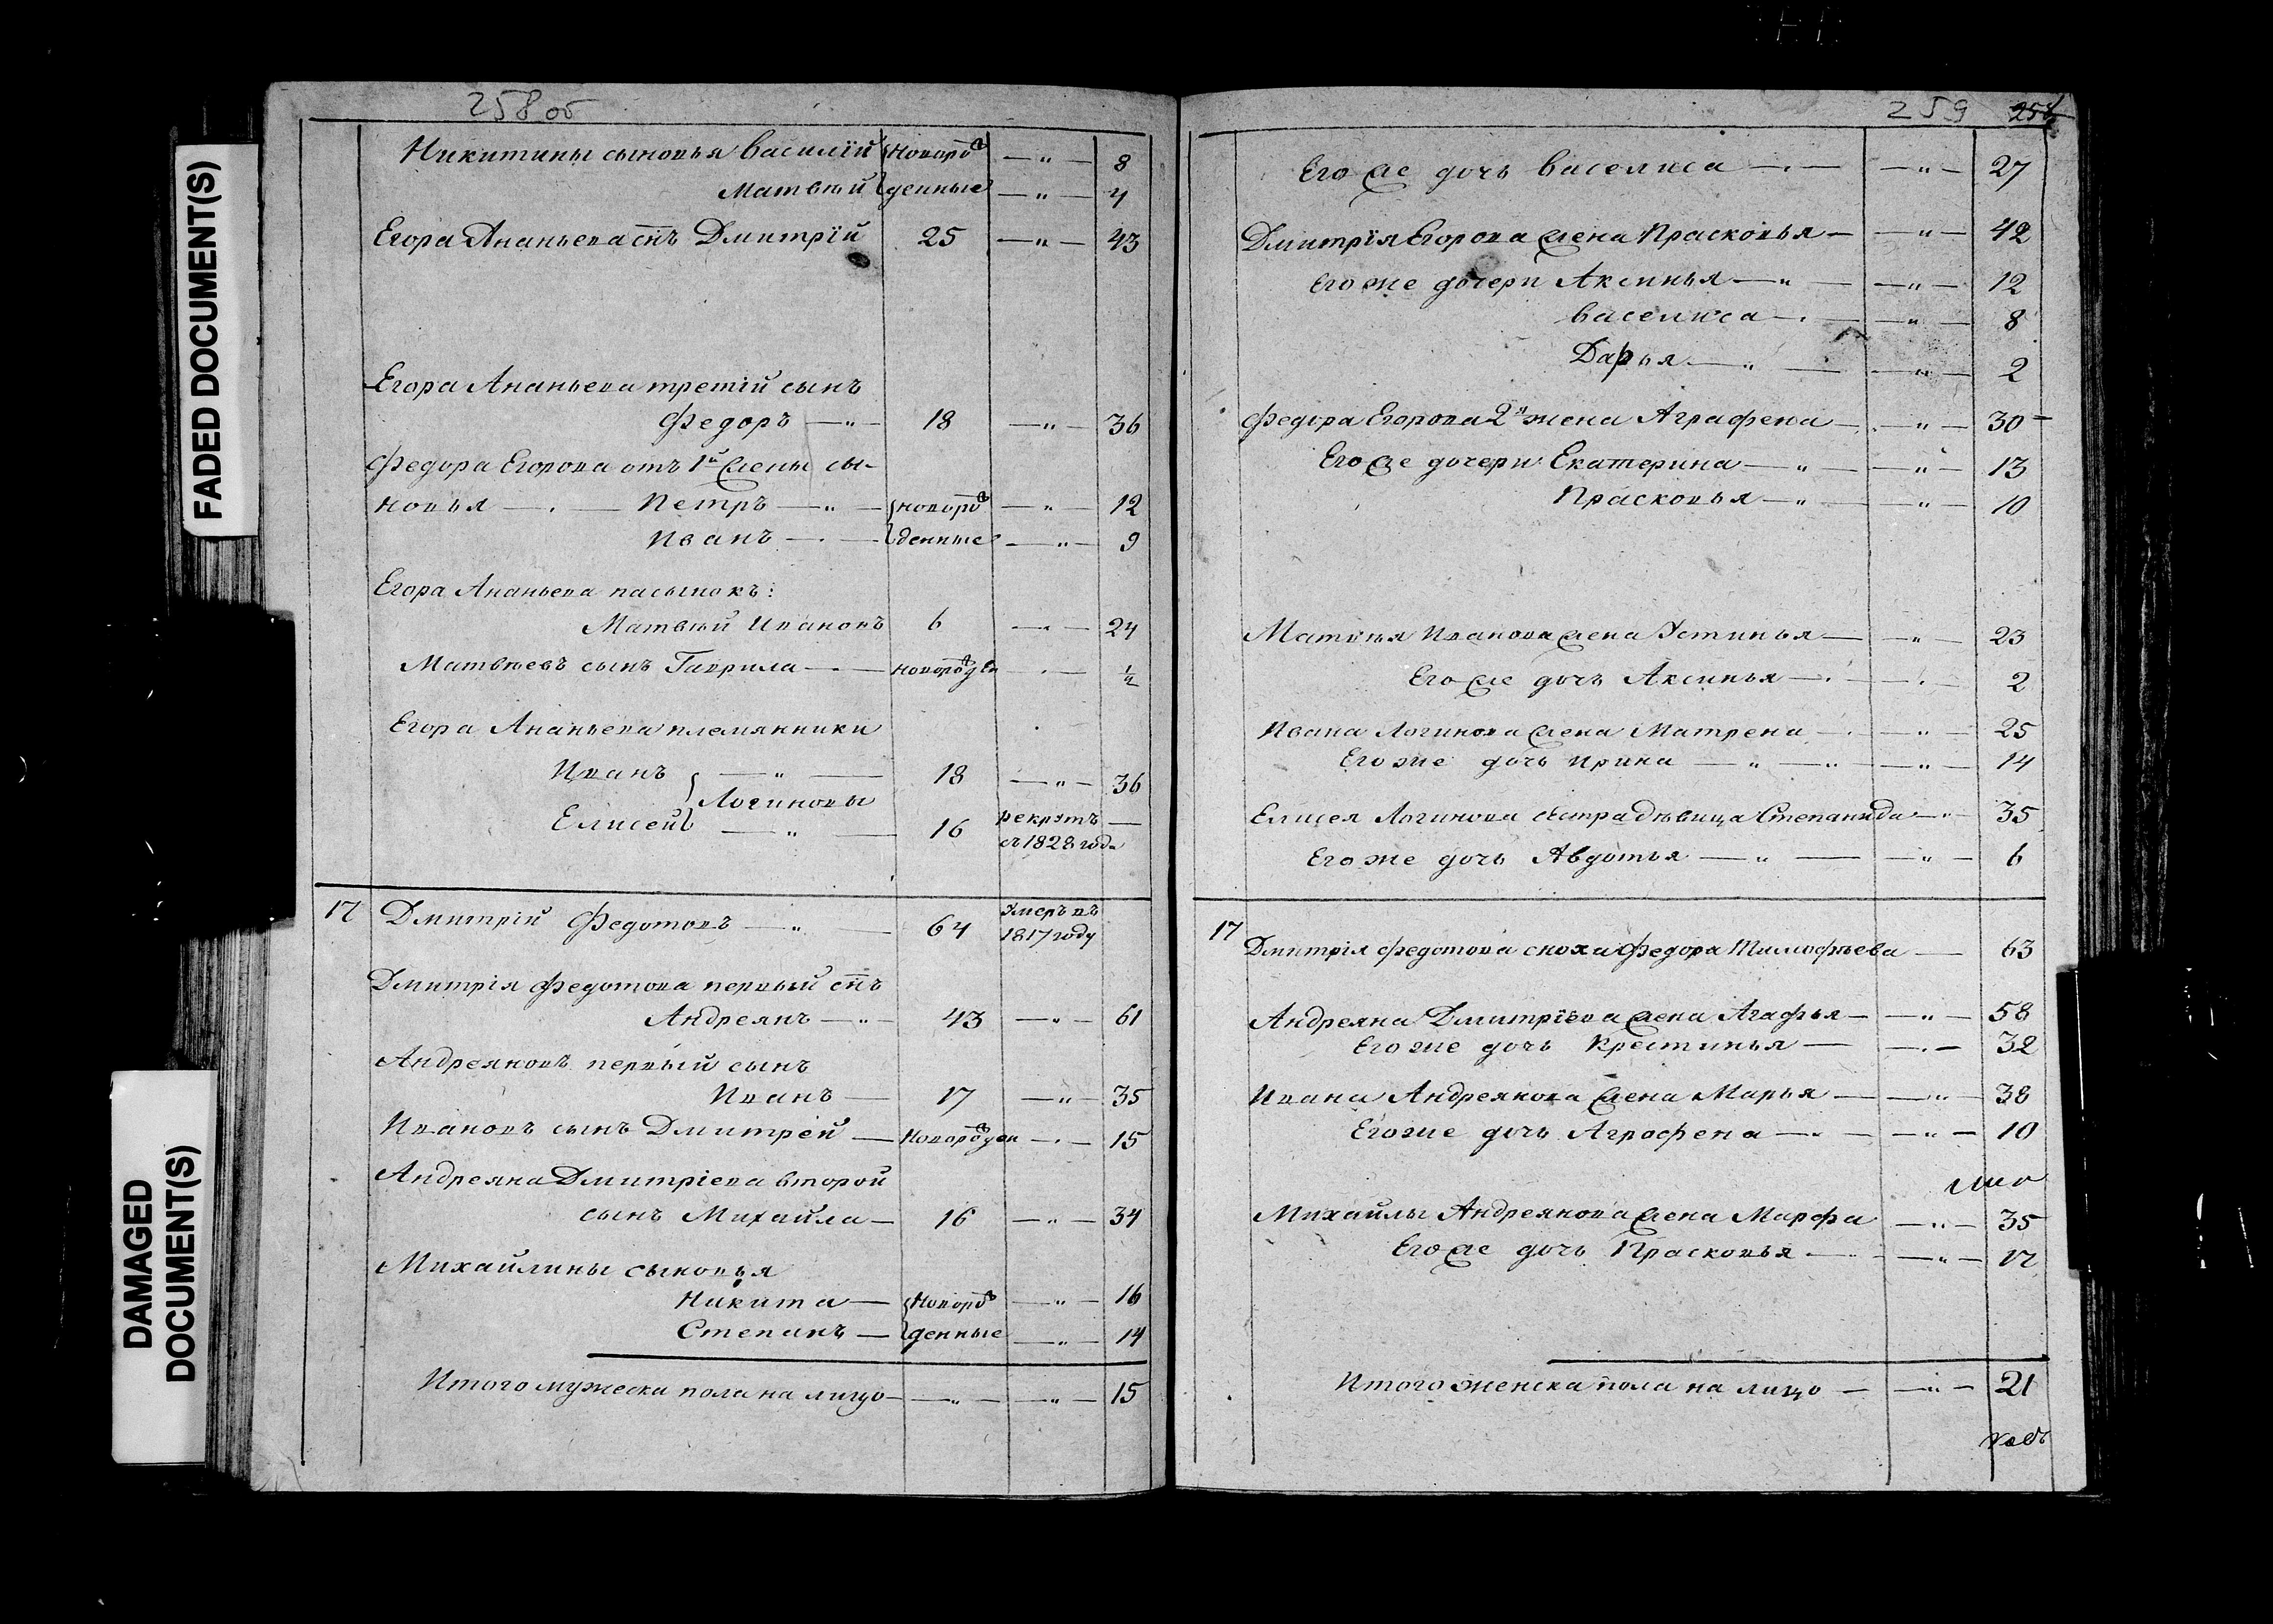 FADED DOCUMENT(S)
DAMAGED
DOCUMENT(S)
258 об
Никитины сыновья Василiй новоро — " — 8
Матвѣй жденные — " — 4
Егора Ананьева сн̃ъ Дмитрiй 25 — " — 43
Егора Ананьева третiй сынъ
Федоръ — " — 18 — " — 36
Федора Егорова отъ 1й жены сы-
новья — . — Петръ — " — новорож — " — 12
Иванъ — . — денные — " — 9
Егора Ананьева пасынокъ:
Матвѣй Ивановъ 6 — " — 24
Матвѣевъ сынъ Гаврила — " — новорожден — . — ½
Егора Ананьева племянники
Иванъ — " — 18 — " — 36
Логиновы
Елисей — " — 16 рекрутъ —
съ 1828 года
17 Дмитрiй Федотовъ — " — 64 умеръ въ
1817 году
Дмитрiя Федотова первый сн̃ъ
Андреянъ — " — 43 — " — 61
Андреяновъ первый сынъ
Иванъ — 17 — " — 35
Ивановъ сынъ Дмитрей — новорожден — . — 15
Андреяна Дмитрiева второй
сынъ Михайла — 16 — " — 34
Михайлины сыновья
Никита — новорож — " — 16
Степанъ — денные — " — 14
Итого мужеска пола на лицо — " — " — 15
259 258
Его же дочь Василиса — . — — " — 27
Дмитрiя Егорова жена Прасковья — — " — 42
Его же дочери Аксинья — " — — " — 12
Василиса — . — — " — 8
Дарья — " — — " — 2
Федора Егорова 2я жена Аграфена — . — " — 30 —
Его же дочери Екатерина — " — — " — 13
Прасковья — " — — " — 10
Матвѣя Иванова жена Устинья — — " — 23
Его же дочь Аксинья — . — . — 2
Ивана Логинова жена Матрена — . — " — 25
Его же дочь Ирина — " — " — " — 14
Елисея Логинова сестра дѣвица Степанида — " — 35
Его же дочь Авдотья — " — — " — 6
17 Дмитрiя Федотова сноха Федора Тимофѣева — 63
Андреяна Дмитрiева жена Агафья — — " — 58
Его же дочь Крестинья — — . — 32
Ивана Андреянова жена Марья — — " — 38
Его же дочь Аграфена — " — — " — 10
Михайлы Андреянова жена Марфа — " — 35
Его же дочь Прасковья — — " — 12
Итого женска пола на лицо — — " — 21